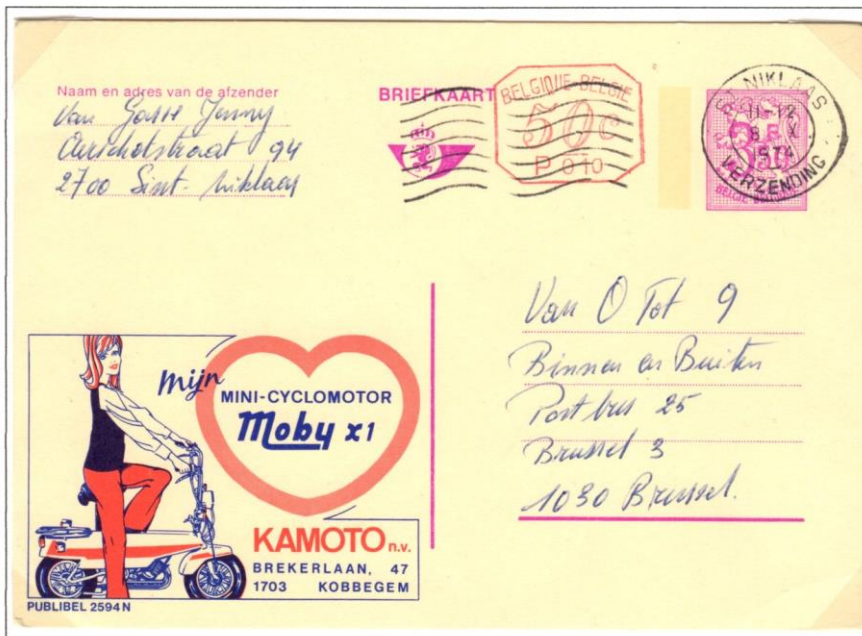 Naam en adres van de afzender
Van Gasse Jenny
Aerschotstraat 94
2700 Sint-Niklaas
BRIEFKAART
BELGIQUE-BELGIE
50c
P010
ST NIKLAAS
11-12
1974
VERZENDING
Van O Tot 9
Binnen en Buiten
Postbus 25
Brussel 3
1030 Brussel.
mijn
MINI-CYCLOMOTOR
Moby x1
KAMOTO n.v.
BREKERLAAN, 47
1703 KOBBEGEM
PUBLIBEL 2594 N